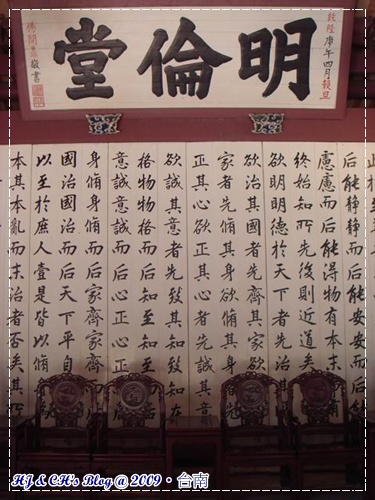 明倫堂
庚午四月穀旦
后能靜靜而后能安安而
慮慮而后能得物有本末
終始知所先後則近道矣
欲明明德於天下者先治
欲治其國者先齊其家欲
家者先脩其身欲脩其身
正其心欲正其心者先誠其意
欲誠其意者先致其知致知在
格物物格而后知至知至
意誠意誠而后心正心正
身脩身脩而后家齊家齊
國治國治而后天下平自
以至於庶人壹是皆以脩
本其本亂而末治者否矣其
HJ & CH's Blog @ 2009・台南